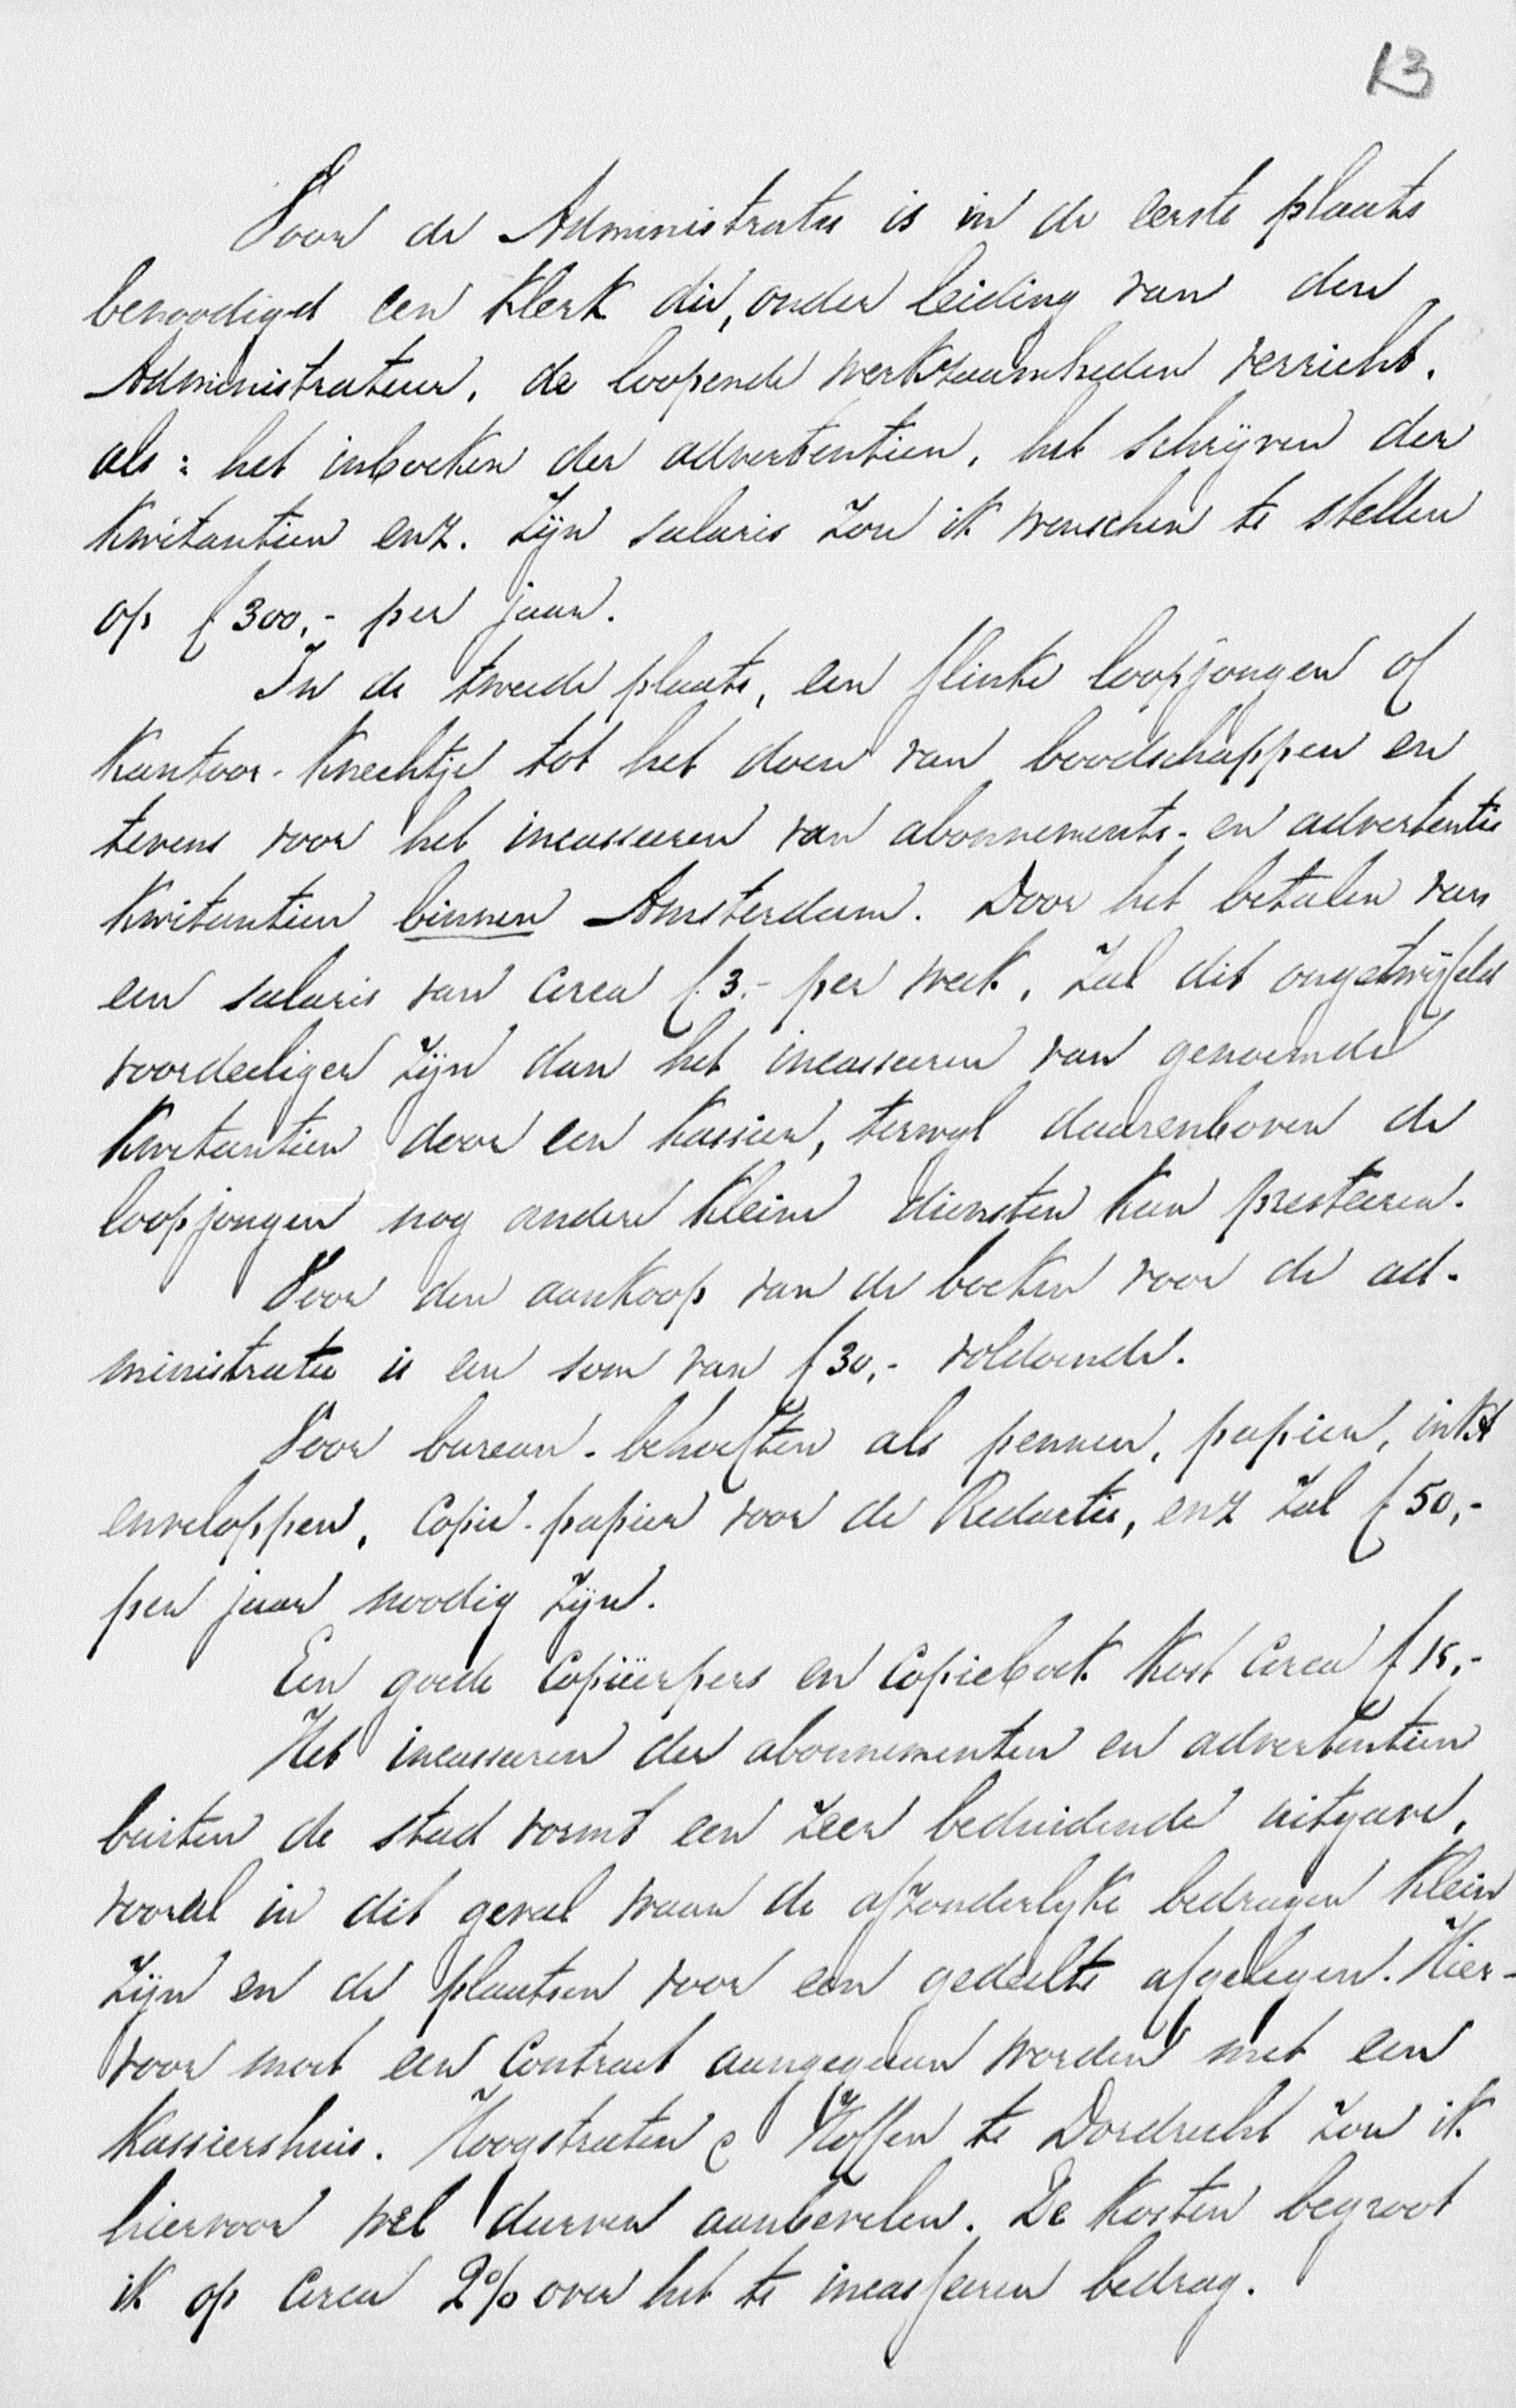 13
Voor de Administratie is in de eerste plaats
benoodigd een klerk die, onder leiding van den
Administrateur, de loopende werkzaamheden verricht,
als: het inboeken der advertentien, het schrijven der
kwitantien enz. Zijn salaris zou ik wenschen te stellen
op f 300,- per jaar.
In de tweede plaats, een flinke loopjongen of
kantoor-knechtje tot het doen van boodschappen en
tevens voor het incasseeren van abonnements- en advertentie
kwitantien binnen Amsterdam. Door het betalen van
een salaris van circa f 3.- per week, zal dit ongetwijfeld
voordeeliger zijn dan het incasseeren van genoemde
kwitantien door een kassier, terwyl daarenboven de
loopjongen nog andere kleine diensten kan presteeren.
Voor den aankoop van de boeken voor de ad-
ministratie is een som van f 30,- voldoende.
Voor bureau-behoeften als pennen, papier, inkt
enveloppen, Copie-papier voor de Redactie, enz zal f 50,-
per jaar noodig zijn.
Een goede Copiëerpers en Copieboek kost circa f 15,-
Het incasseeren der abonnementen en advertentien
buiten de stad vormt een zeer beduidende uitgave,
vooral in dit geval waar de afzonderlyke bedragen klein
zijn en de plaatsen voor een gedeelte afgelegen. Hier-
voor moet een Contract aangegaan worden met een
kassiershuis. Hoogstraten & Hoffen te Dordrecht zou ik
hiervoor wel durven aanbevelen. De kosten begroot
ik op circa 2% over het te incasseeren bedrag.